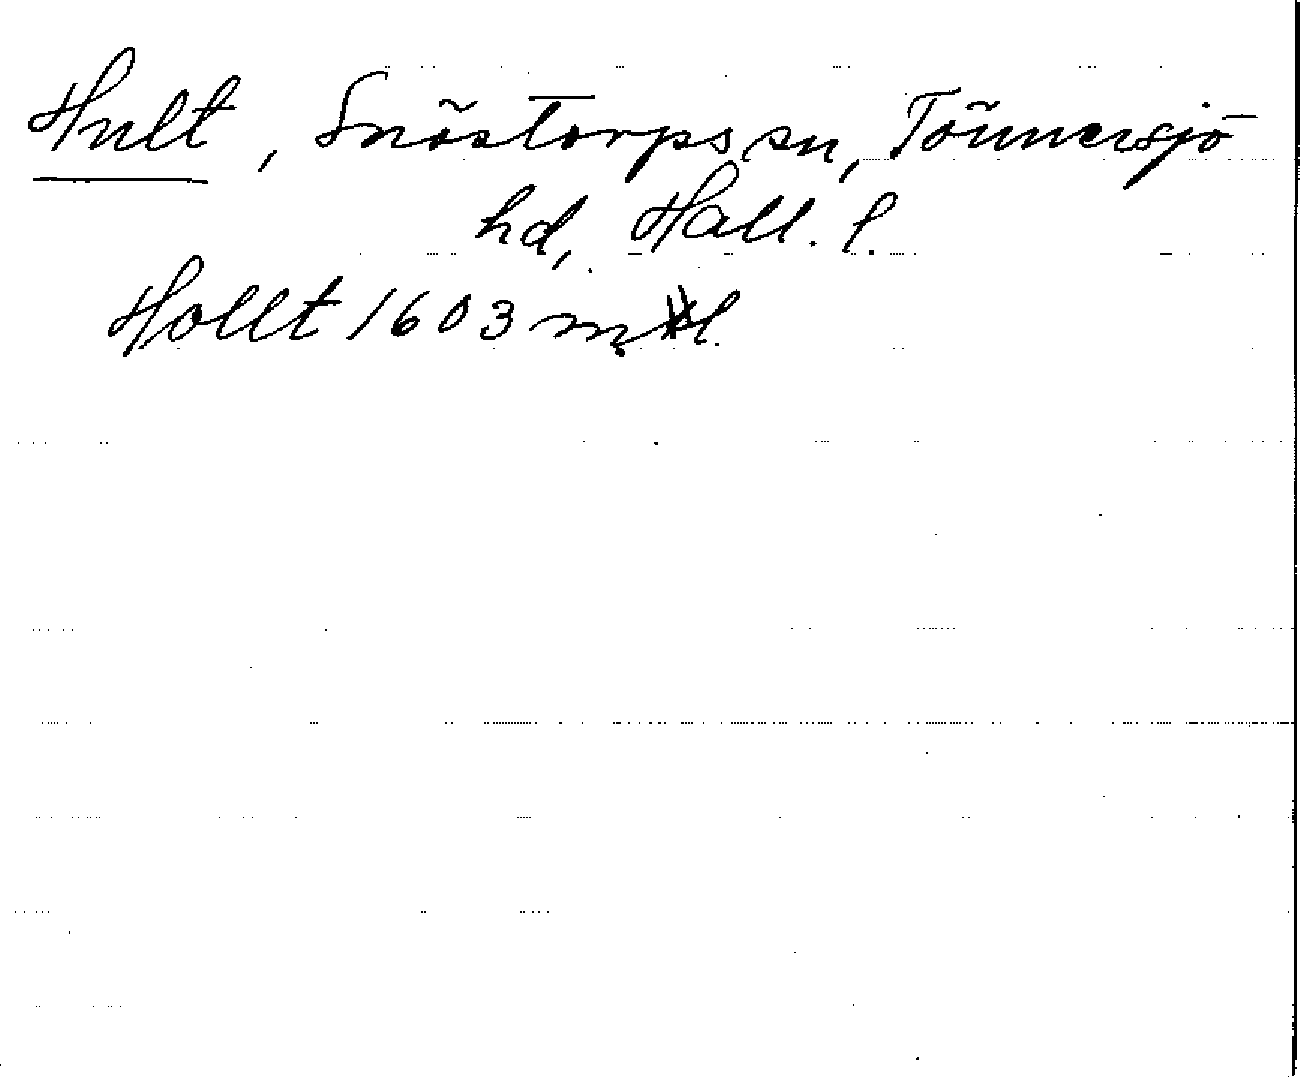 Hult, Snöstorps sn, Tönnersjö
hd, Hall. l.
Hollt 1603